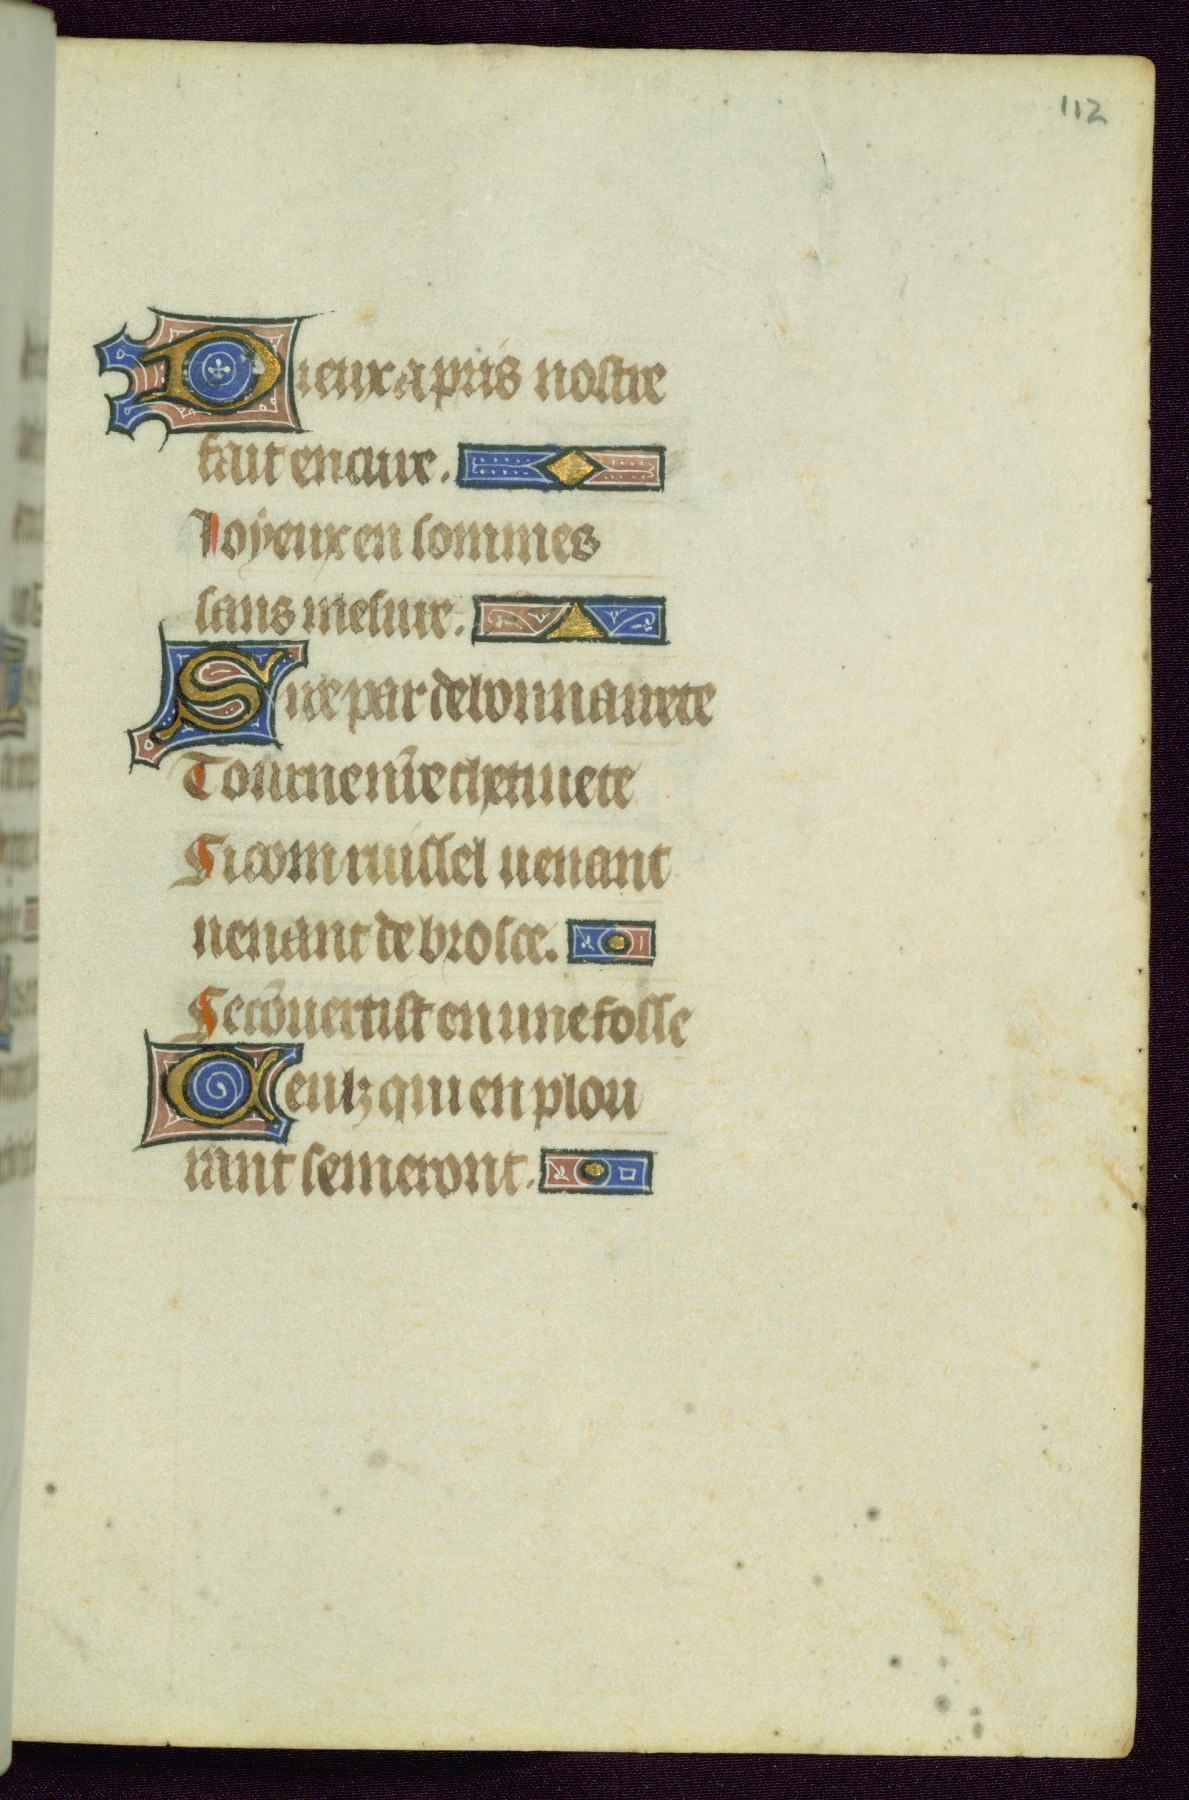 112
Dieux a pris nostre
fait en cure.
Joyeux en sommes
sans mesure.
Sire par de bonnaurete
Tourne nr̄e chetiuete
Si com ruissel uenant
uenant de brosce.
Se cōuertist en une fosse
Ceulz qui en plou
rant semeront.